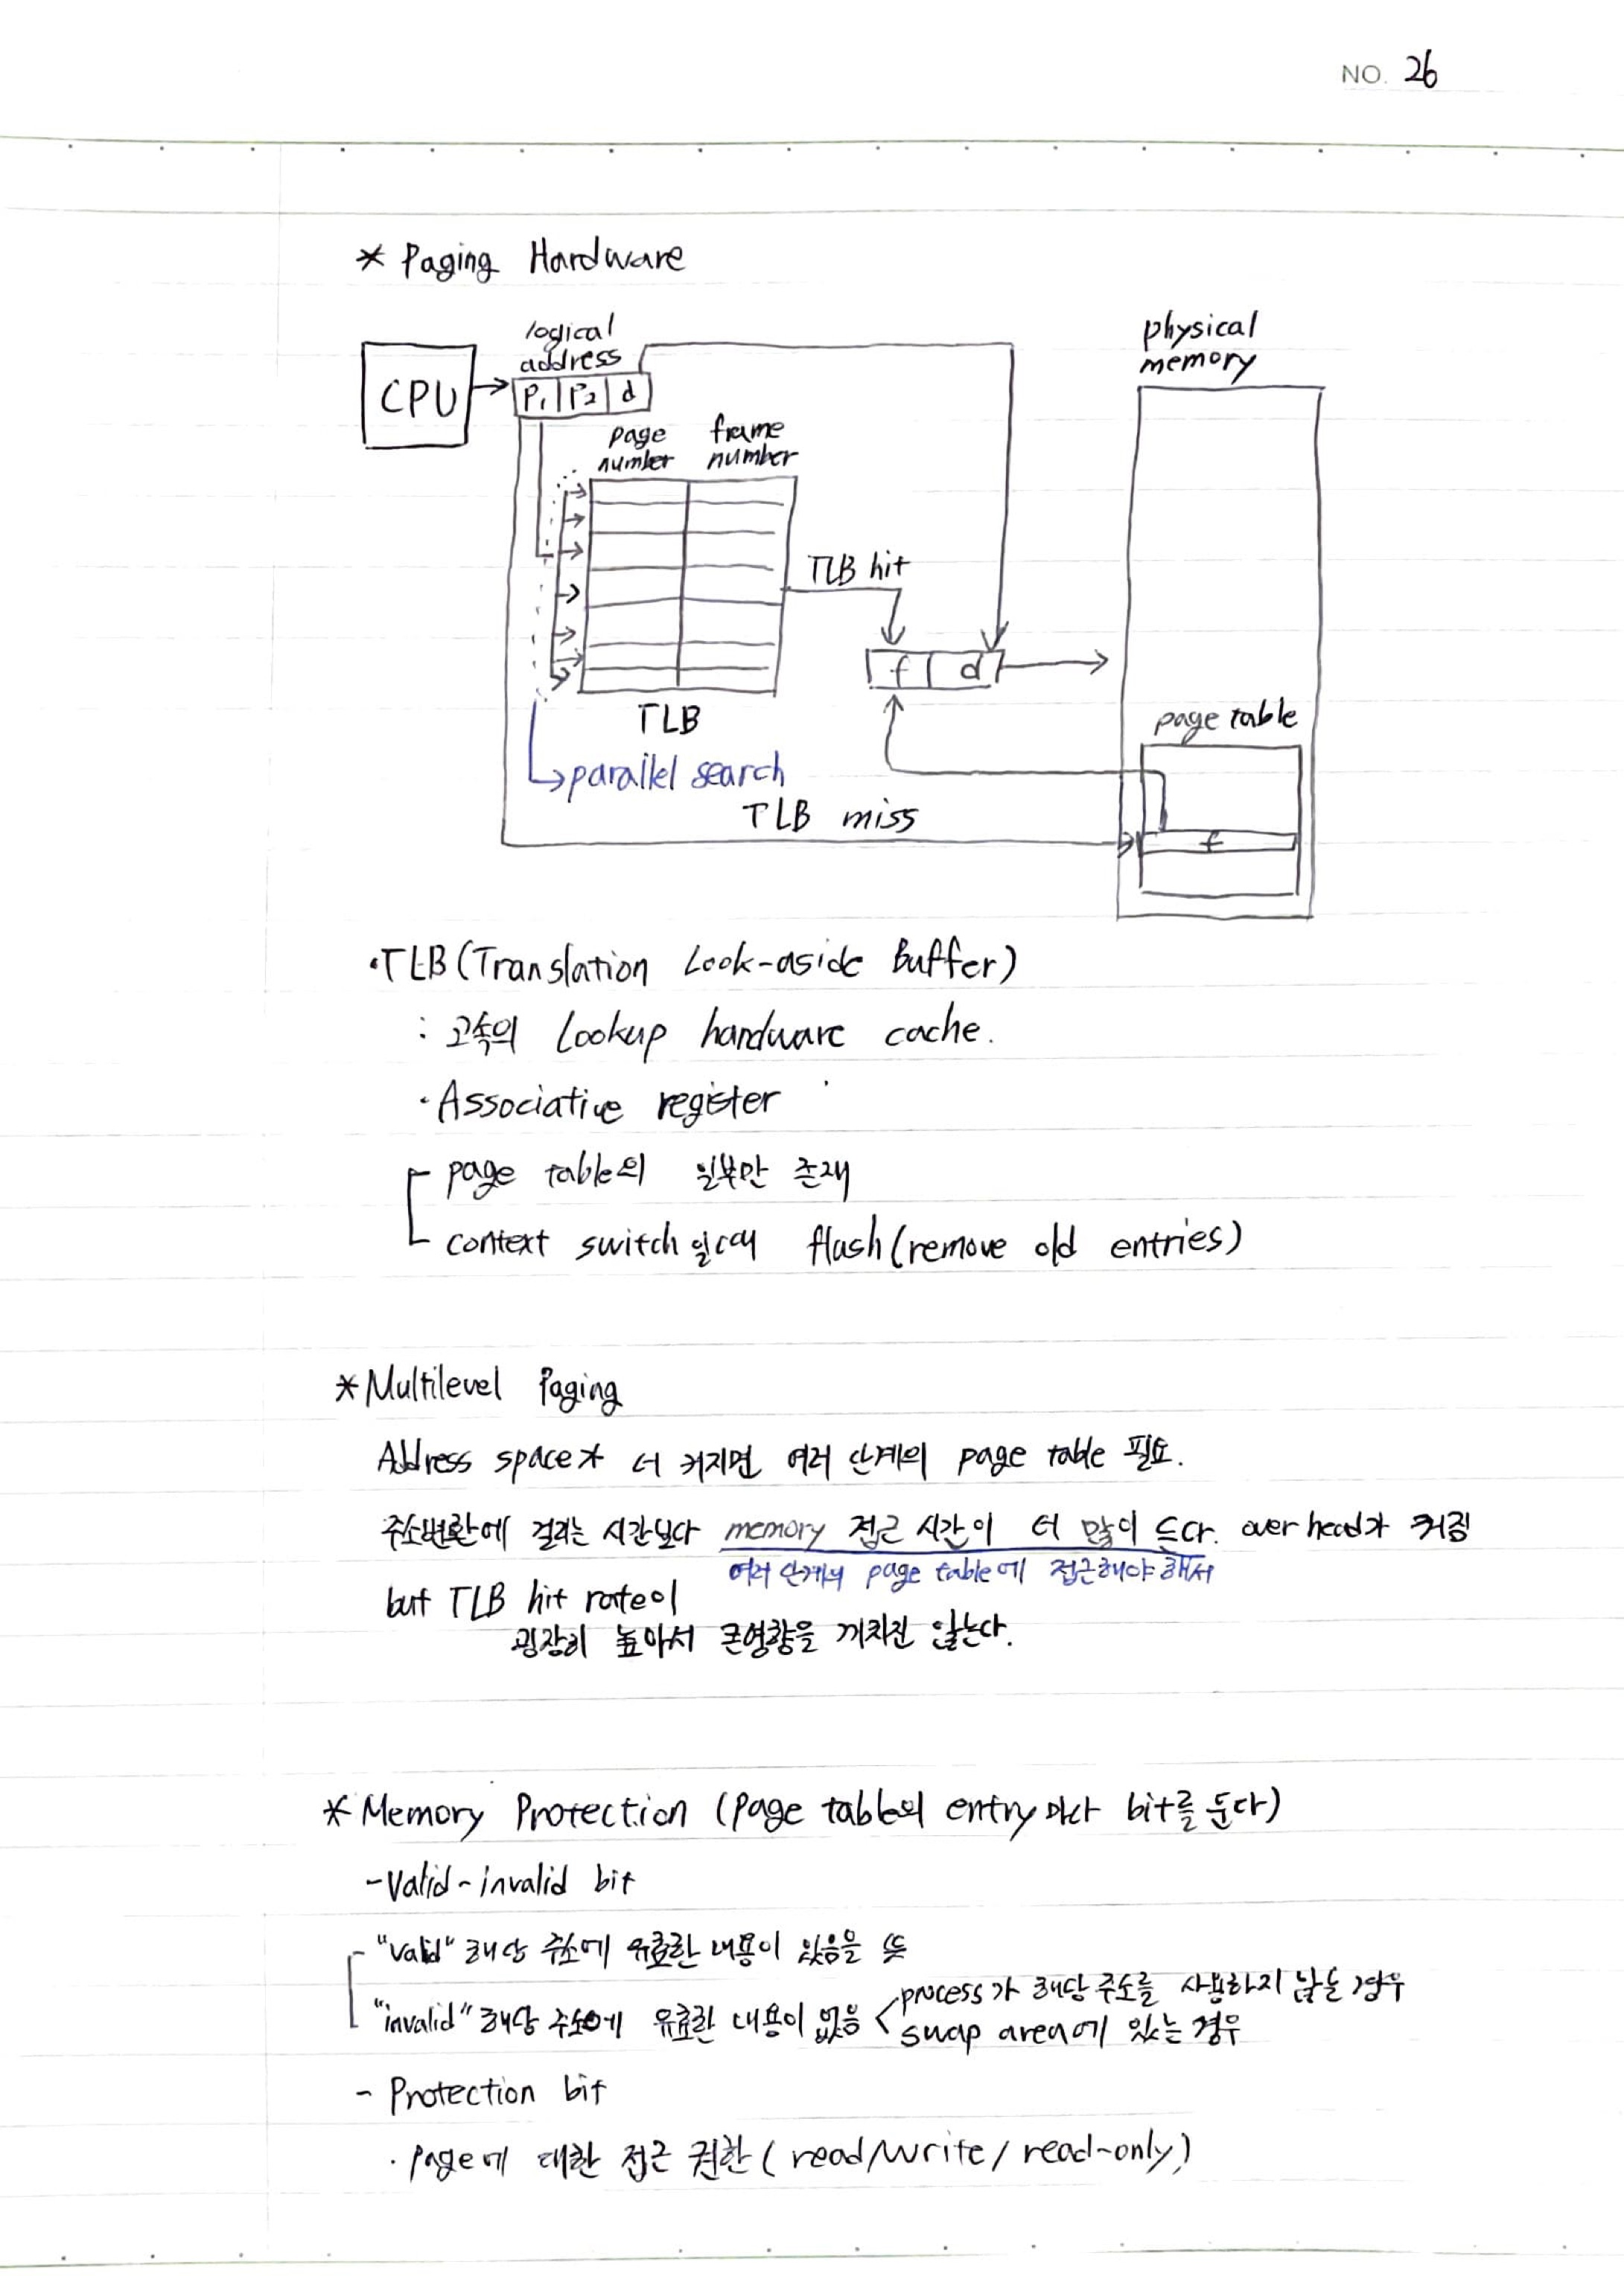 NO. 26
* Paging Hardware
logical
address
CPU
P1 P2 d
page
number
frame
number
physical
memory
TLB hit
f d
TLB
page table
parallel search
TLB miss
f
·TLB(Translation Look-aside Buffer)
: 고속의 Lookup hardware cache.
·Associative register
page table의 일부만 존재
context switch일때 flash(remove old entries)
*Multilevel Paging
Address space가 더 커지면 여러 단계의 page table 필요.
주소변환에 걸리는 시간보다 memory 접근 시간이 더 많이 든다. over head가 커짐
여러 단계의 page table에 접근해야 해서
but TLB hit rate이
굉장히 높아서 큰영향을 끼치진 않는다.
*Memory Protection (page table의 entry마다 bit를 둔다)
-Valid-invalid bit
"valid" 해당 주소에 유효한 내용이 있음을 뜻
"invalid" 해당 주소에 유효한 내용이 없음
process가 해당 주소를 사용하지 않는 경우
swap area에 있는 경우
- Protection bit
·page에 대한 접근 권한(read/write/read-only)